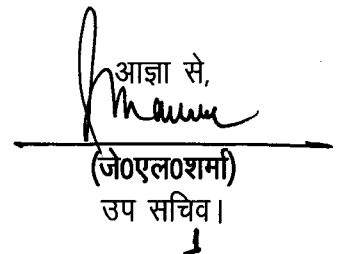 आज्ञा से,
(जे0एल0शर्मा)
उप सचिव।